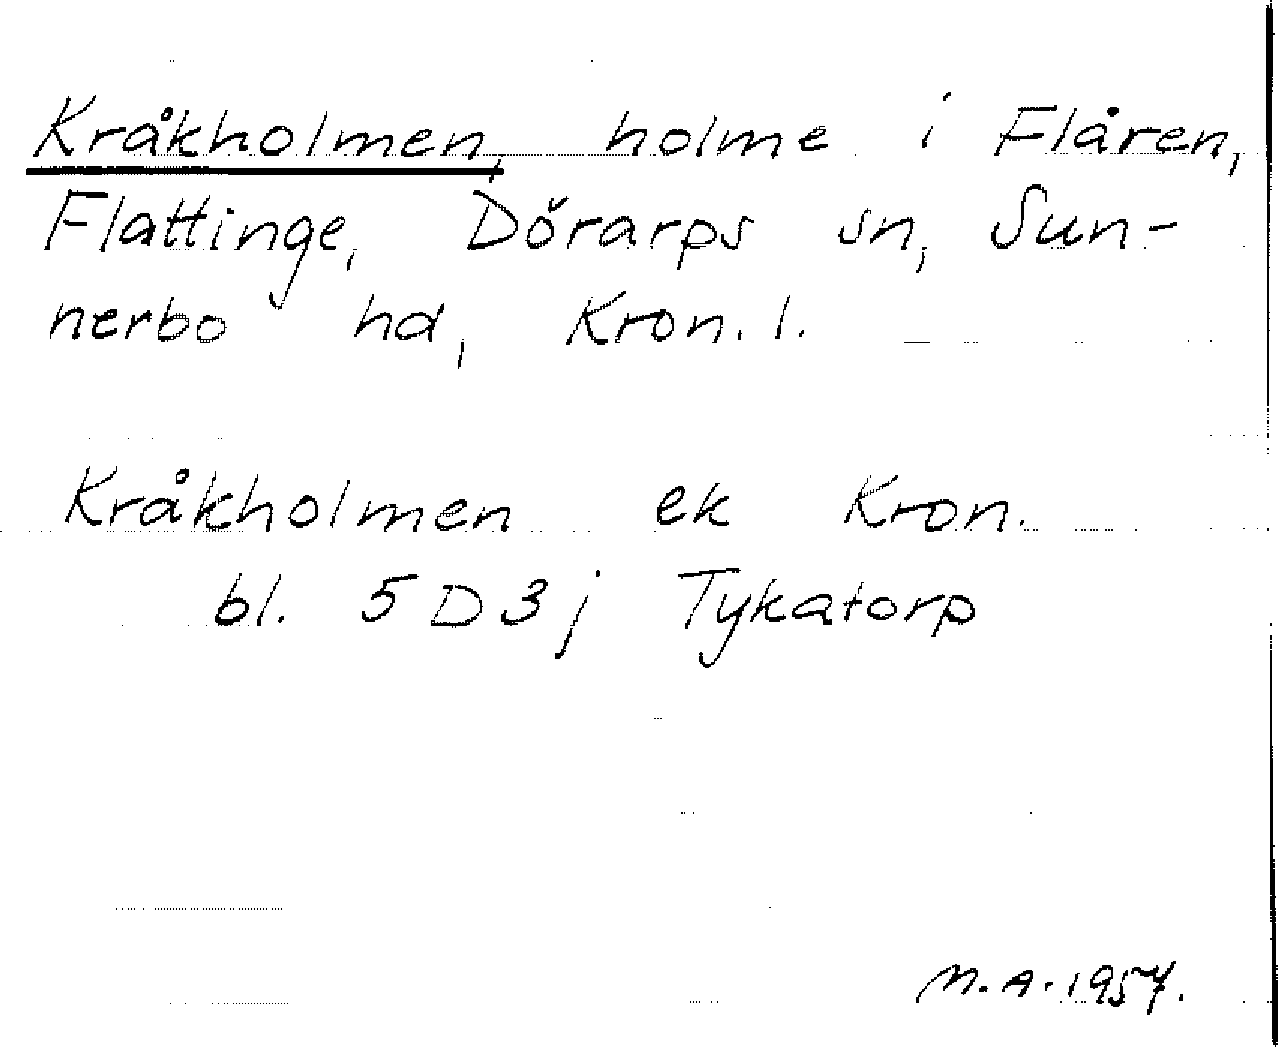 Kråkholmen, holme i Flåren,
Flattinge, Dörarps sn, Sun-
nerbo hd, Kron. l.
Kråkholmen ek Kron.
bl. 5 D 3 j Tykatorp
M. A. 1957.